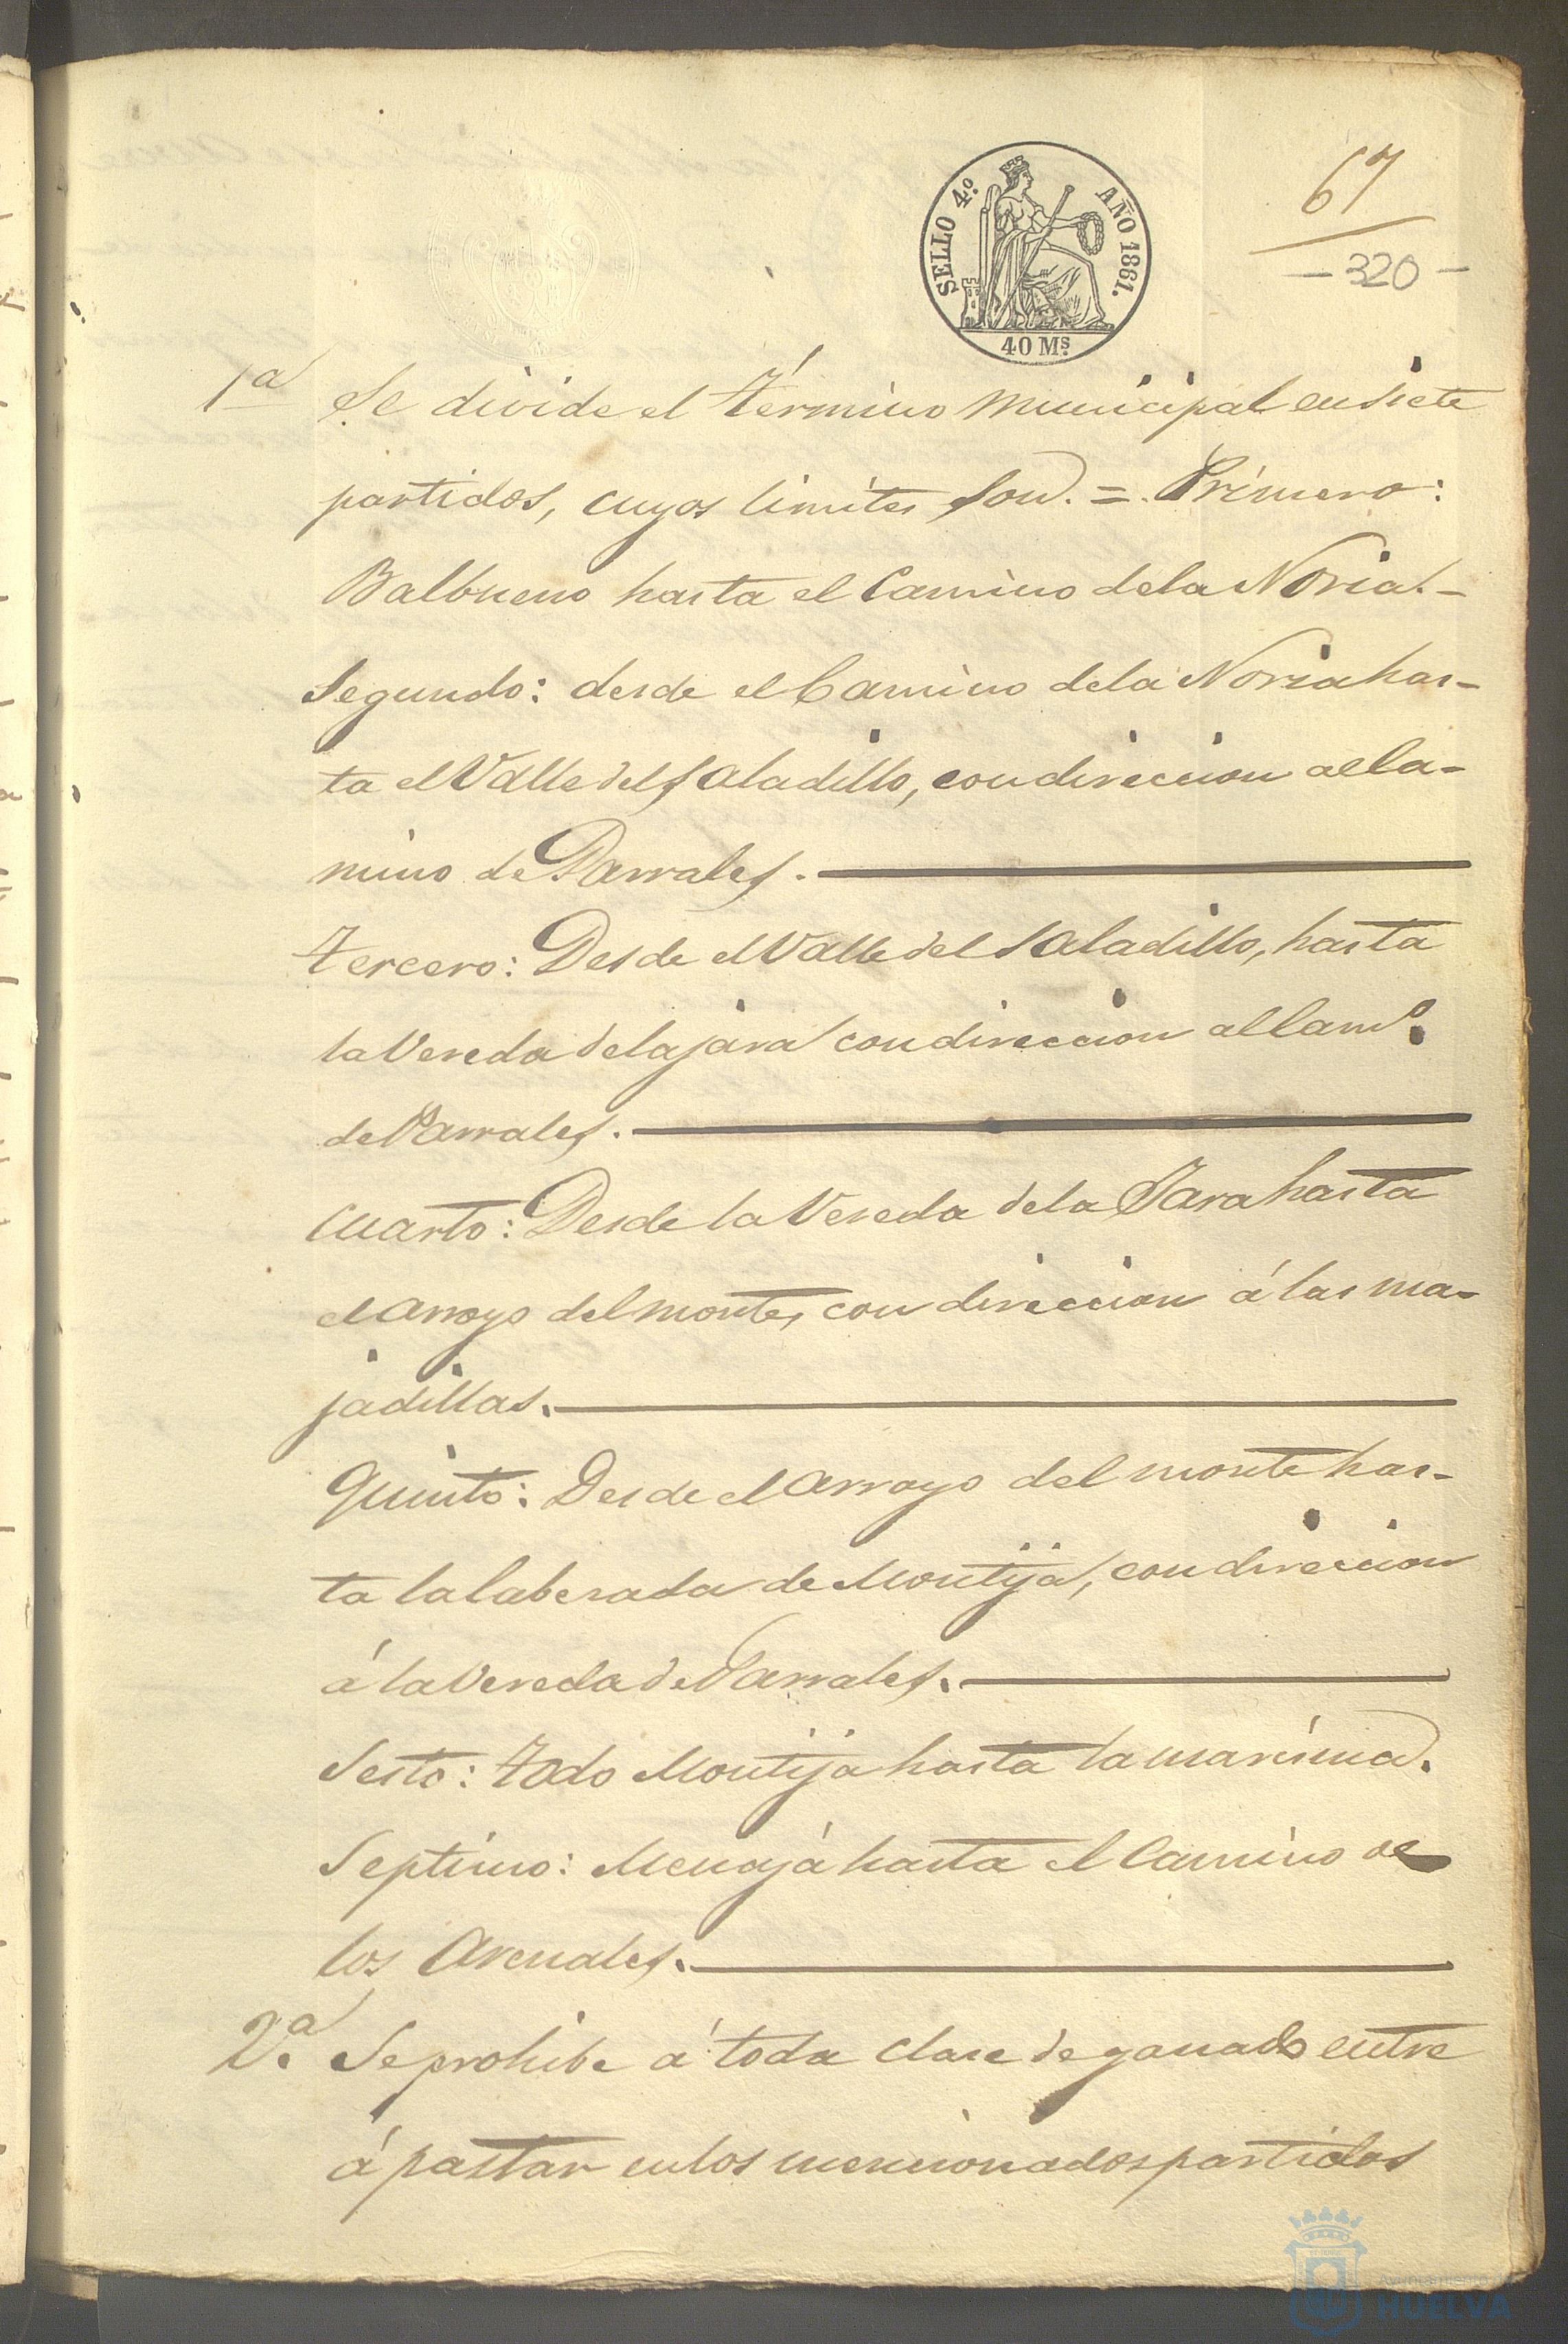 SELLO 4.º AÑO 1861.
40 Ms.
67
- 320 -
1ª Se divide el término municipal en siete
partidos, cuyos limites son. = Primero:
Balbueno hasta el Camino de la Noria. -
Segundo: desde el Camino de la Noria has-
ta el Valle del Saladillo, con direccion al Ca-
mino de Parrales.
tercero: Desde el Valle del Saladillo, hasta
la Vereda de la jara con direccion al Camº.
de Parrales.
Cuarto: Desde la Vereda de la Jara hasta
el arroyo del monte, con direccion á las ma-
jadillas.
Quinto: Desde el arroyo del monte has-
ta la laberada de Montija, con direccion
á la Vereda de Parrales.
Sesto: todo Montija hasta la marisma.
Septimo: Menajá hasta el Camino de
los Arenales.
2.ª Se prohibe á toda clase de ganado entre
á pastar en los mencionados partidos
Ayuntamiento
HUELVA